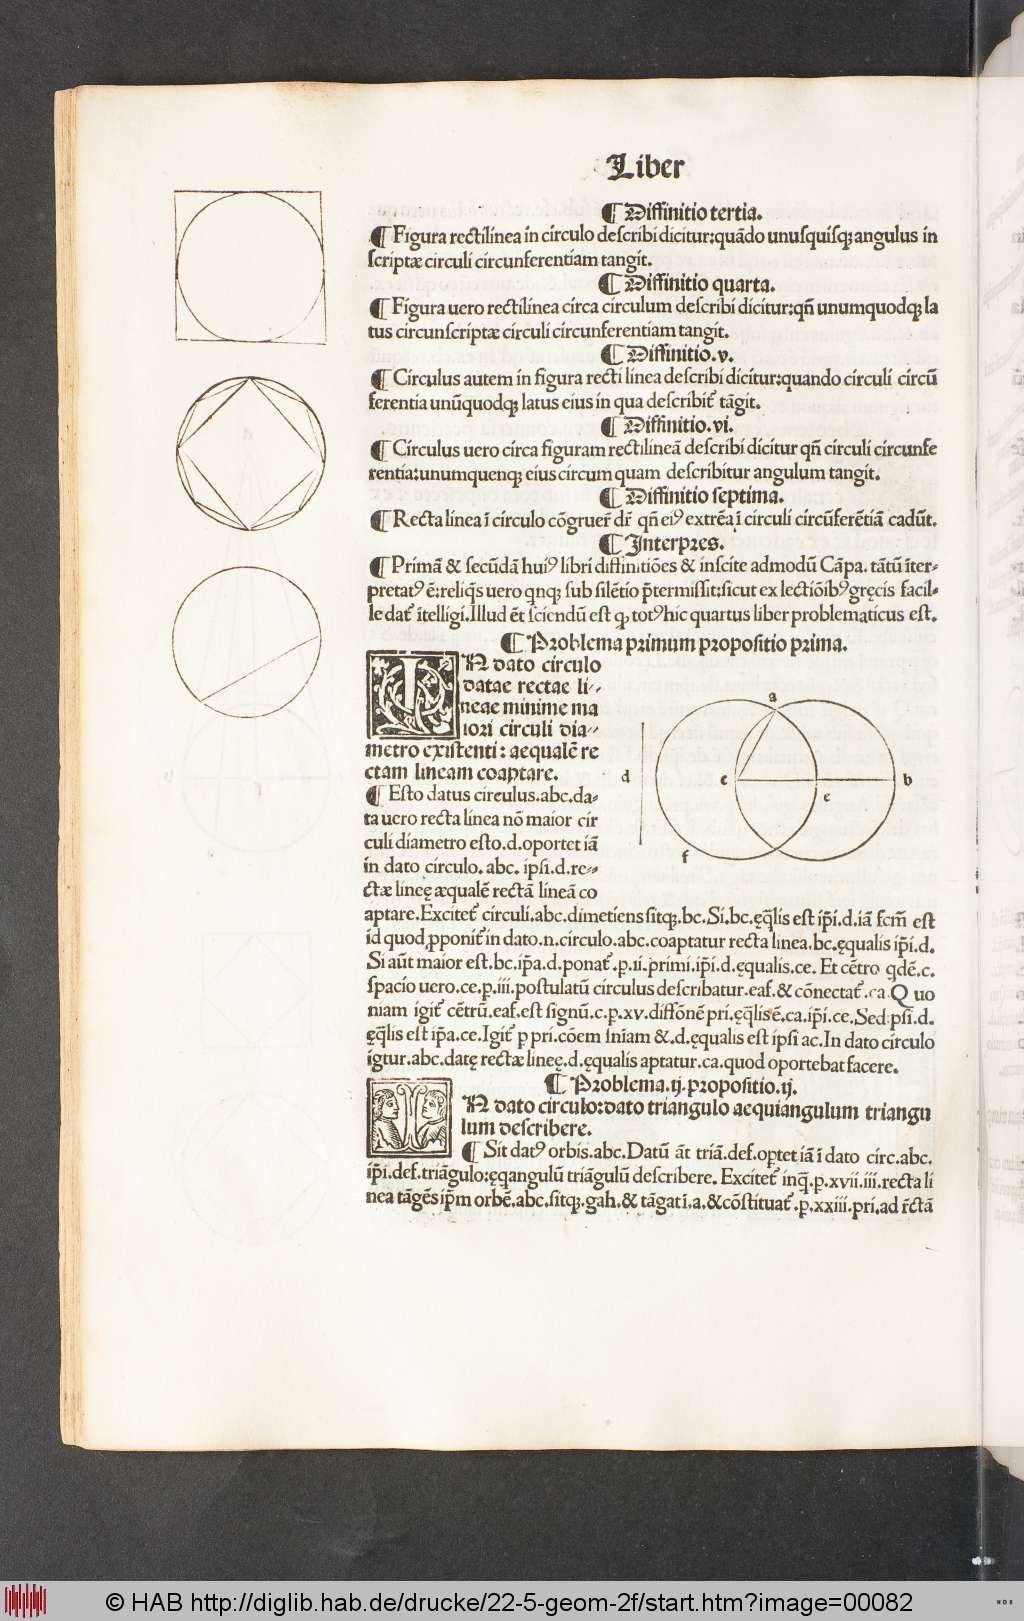 Liber
¶ Diffinitio tertia.
¶ Figura rectilinea in circulo describi dicitur: quãdo unusquisqꝫ angulus in
scriptæ circuli circunferentiam tangit.
¶ Diffinitio quarta.
¶ Figura uero rectilinea circa circulum describi dicitur: qñ unumquodqꝫ la
tus circunscriptæ circuli circunferentiam tangit.
¶ Diffinitio.v.
¶ Circulus autem in figura recti linea describi dicitur: quando circuli circũ
ferentia unũquodqꝫ latus eius in qua describit᷑ tãgit.
¶ Diffinitio.vi.
¶ Circulus uero circa figuram rectilineã describi dicitur qñ circuli circunfe
rentia: unumquenqꝫ eius circum quam describitur angulum tangit.
¶ Diffinitio septima.
¶ Recta linea ĩ circulo cõgruer̃ dr̃ qñ eiꝰ extrẽa ĩ circuli circũferẽtiã cadũt.
¶ Interpres.
¶ Primã & secũdã huiꝰ libri diffinitiões & inscite admodũ Cãpa. tãtũ ĩter-
pretatꝰ ẽ: reliq̃s uero qnqꝫ sub silẽtio p̃termissit: sicut ex lectiõibꝰ gręcis facil-
le dat᷑ ĩtelligi. Illud ẽt sciendũ est qꝫ totꝰ hic quartus liber problematicus est.
¶ Problema primum propositio prima.
IN dato circulo
datae rectae li-
neae minime ma
iori circuli dia-
metro existenti: aequalẽ re
ctam lineam coaptare.
¶ Esto datus circulus.abc.da-
ta uero recta linea nõ maior cir
culi diametro esto.d.oportet iã
in dato circulo. abc. ipsi.d.re-
ctæ lineę æqualẽ rectã lineã co
aptare. Excitet᷑ circuli.abc.dimetiens sitqꝫ.bc. Si.bc.ęq̃lis est ip̃i.d.iã fcm̃ est
id quod ꝓponit᷑ in dato.n.circulo.abc.coaptatur recta linea.bc.ęqualis ip̃i.d.
Si aũt maior est.bc.ip̃a.d.ponat᷑.p.ii.primi.ip̃i.d.ęqualis.ce. Et cẽtro qdẽ.c.
spacio uero.ce.p.iii.postulatũ circulus describatur.eaf.& cõnectat᷑.ca Quo
niam igit᷑ cẽtrũ.eaf.est signũ.c.p.xv.diffõnẽ pri.ęq̃lis ẽ.ca.ip̃i.ce. Sed psi.d.
ęq̃lis est ip̃a.ce. Igit᷑ p pri.cõem sñiam &.d.ęqualis est ipsi ac. In dato circulo
igtur.abc.datę rectæ lineę.d.ęqualis aptatur.ca.quod oportebat facere.
¶ Problema.ij.propositio.ij.
IN dato circulo: dato triangulo aequiangulum triangu
lum describere.
¶ Sit datꝰ orbis.abc. Datũ ãt triã.def.optet iã ĩ dato circ.abc.
ip̃i.def.triãgulo: ęqangulũ triãgulũ describere. Excitet᷑ inq̃.p.xvii.iii.recta li
nea tãgẽs ip̃m orbẽ.abc.sitqꝫ.gah.& tãgat ĩ.a.& cõstituat᷑.p.xxiii.pri.ad r̃ctã
a
d
c
b
e
f
© HAB http://diglib.hab.de/drucke/22-5-geom-2f/start.htm?image=00082